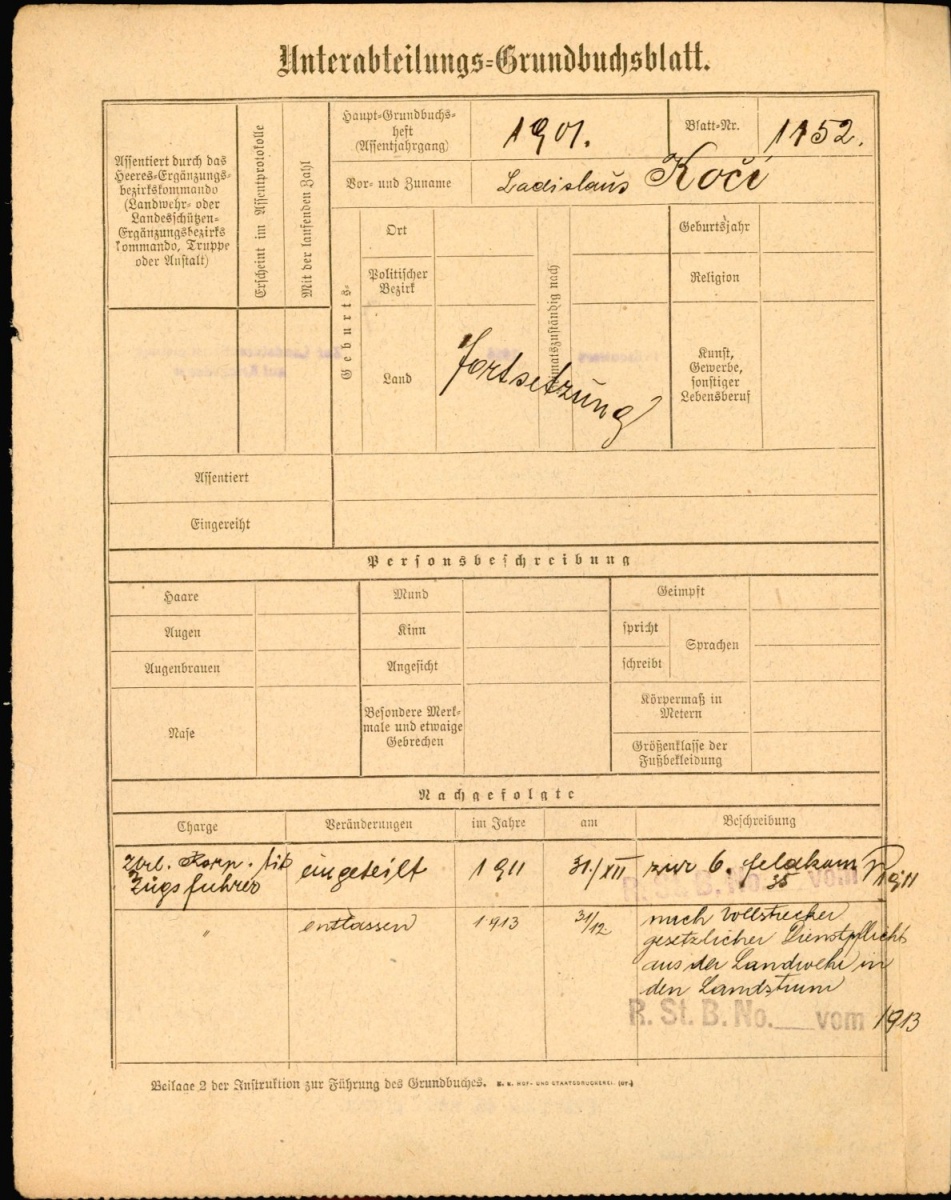 Unterabteilungs-Grundbuchsblatt.
Assentiert durch das
Heeres-Ergänzungs-
bezirkskommando
(Landwehr- oder
Landesschützen-
Ergänzungsbezirks
kommando, Truppe
oder Anstalt)
Erscheint im Assentprotokolle
Mit der laufenden Zahl
Haupt-Grundbuchs-
heft
(Assentjahrgang)
1901.
Blatt-Nr.
1152.
Vor- und Zuname
Ladislaus Kočí
Geburts-
Ort
Politischer
Bezirk
Land
Heimatszuständig nach
Fortsetzung
Geburtsjahr
Religion
Kunst,
Gewerbe,
sonstiger
Lebensberuf
Assentiert
Eingereiht
Personsbeschreibung
Haare
Augen
Augenbrauen
Nase
Mund
Kinn
Angesicht
Besondere Merk-
male und etwaige
Gebrechen
Geimpft
spricht
schreibt
Sprachen
Körpermaß in
Metern
Größenklasse der
Fußbekleidung
Nachgefolgte
Charge
Veränderungen
im Jahre
am
Beschreibung
Korp. tit
Zugsführer
eingeteilt
1911
31./XII
zur 6. Feldkomp
R. St. B. No. 35 vom 1911
"
entlassen
1913
31/12.
nach vollstreckter
gesetzlicher Dienstpflicht
aus der Landwehr in
den Landsturm
R. St. B. No. vom 1913
Beilage 2 der Instruktion zur Führung des Grundbuches. K. K. HOF- UND STAATSDRUCKEREI.